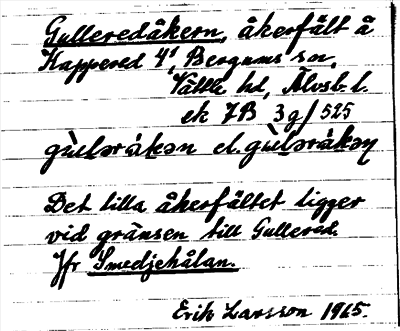 Gulleredåkern, åkerfält å
Kappered 4¹, Bergums sn,
Vättle hd, Älvsb. l.
ek 7B 3g/525
gùləråkən el. gùləråkəη
Det lilla åkerfältet ligger
vid gränsen till Gullered.
Jfr Smedjehålan.
Erik Larsson 1965.